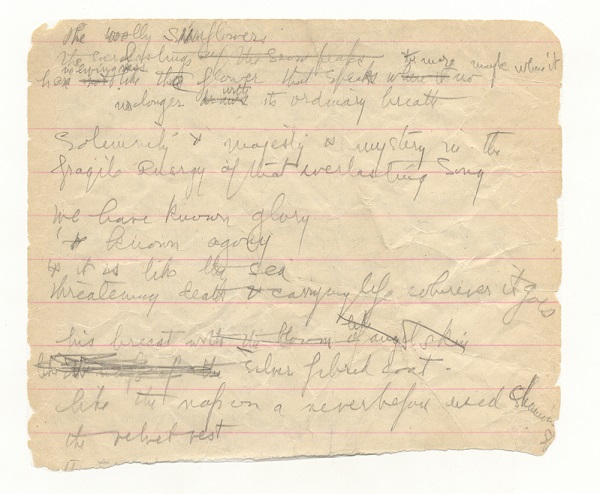 The woolly Sunflower
the everlastings of the snow peaks & more maybe when it
has no living like the flower that speaks when it no
no longer with its ordinary breath
Solemnity & majesty & mystery in the
fragile energy of that everlasting Song
We have known glory
& known agony
& it is like the sea
threatening death & carrying life wherever it goes
his breast with the bloom like of angel skin
silver fibred coat.
like the nap on a never before used
the velvet vest